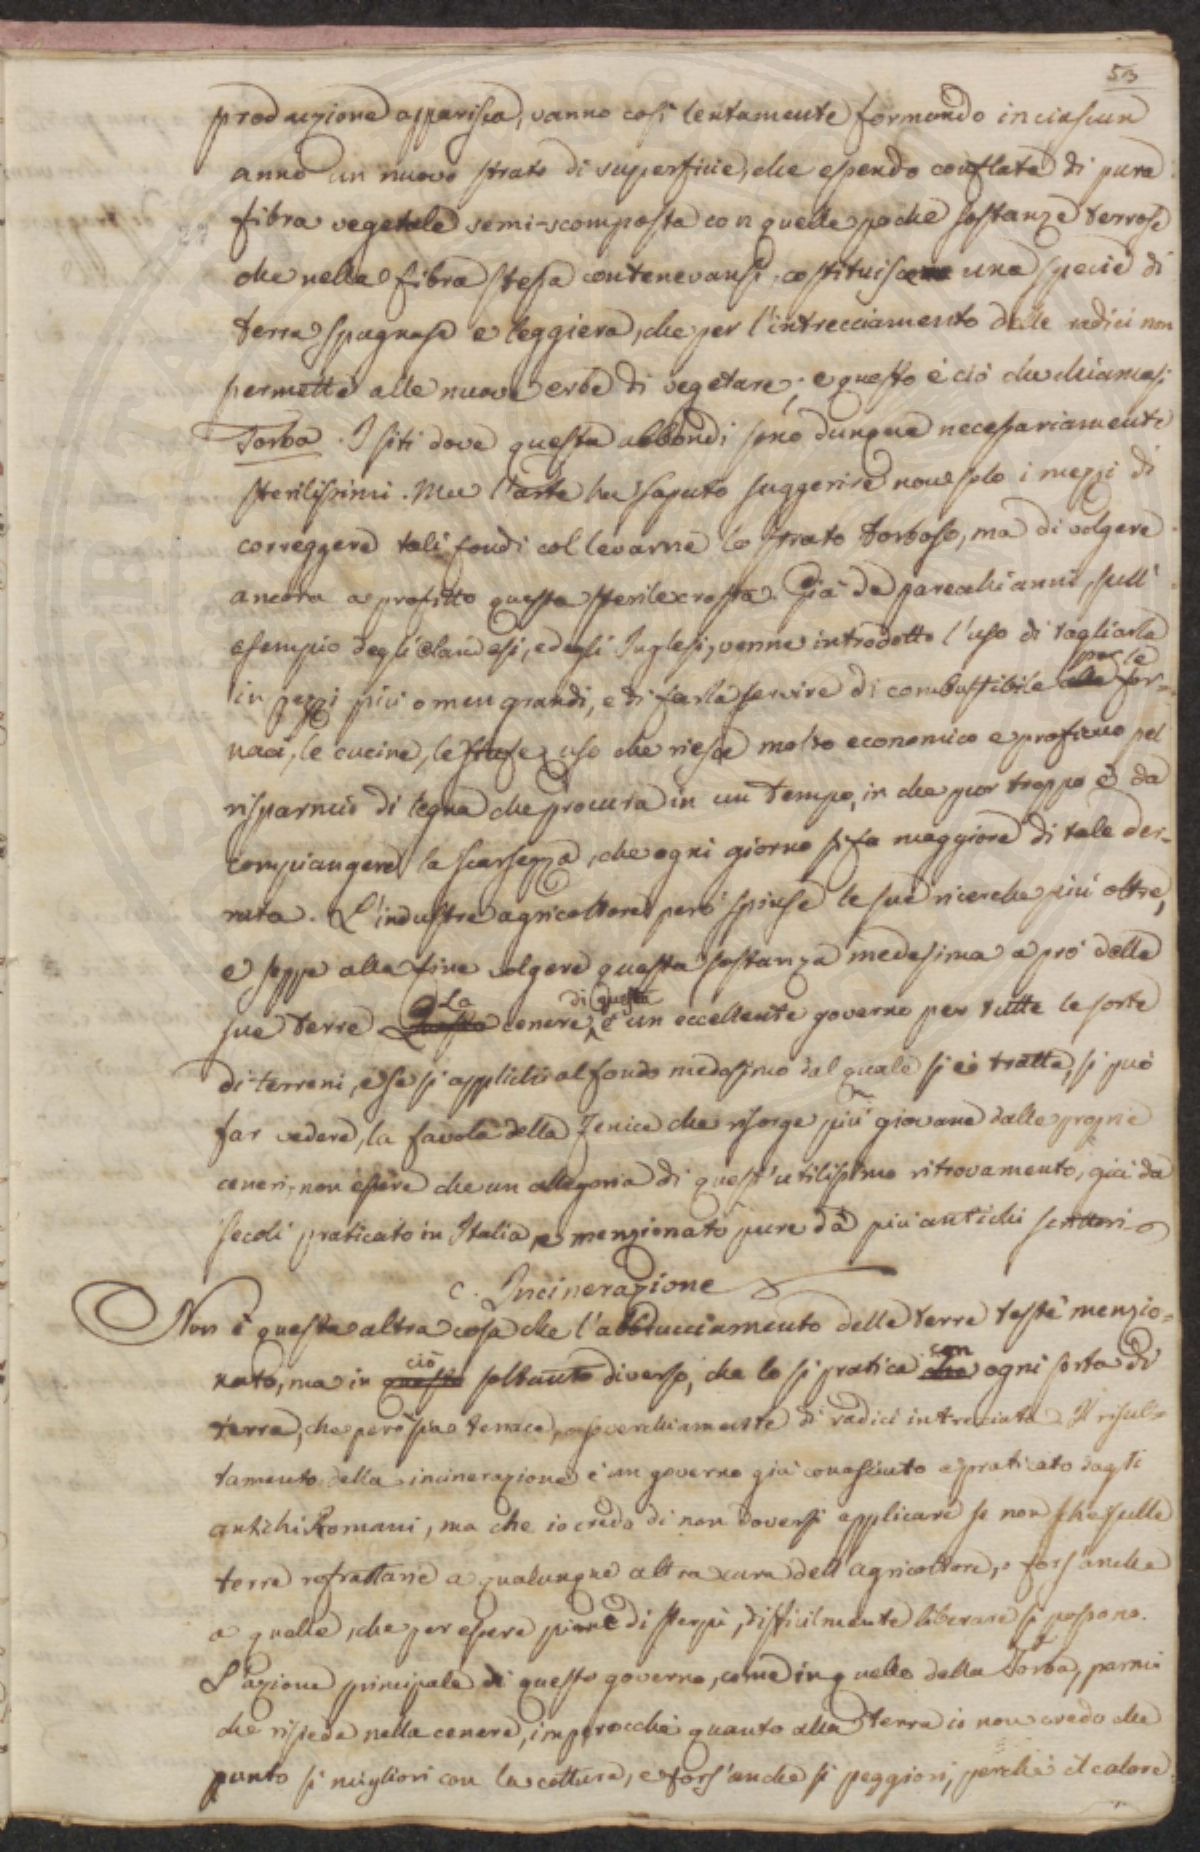 53
produzione apparisca, vanno così lentamente formando in ciascun
anno un nuovo strato di superficie, che essendo conflata di pura
fibra vegetale semi-scomposta con quelle poche sostanze terrose
che nella fibra stessa contenevansi, costituisce una specie di
terra spugnosa e leggiera, che per l'intrecciamento delle radici non
permette alle nuove erbe di vegetare; e questo è ciò che chiamasi
Torba. I siti dove questa abbondi sono dunque necessariamente
sterilissimi. Ma l'arte ha saputo suggerire non solo i mezzi di
correggere tali fondi col levarne lo strato torboso, ma di volgere
ancora a profitto questa sterile crosta. Già da parecchi anni, sull'
esempio degli Olandesi, e degli Inglesi, venne introdotto l'uso di tagliarla
per le
in pezzi più o men grandi, e di farla servire di combustibile alle for-
naci, le cucine, le stufe, uso che riesce molto economico e proficuo pel
risparmio di legna che procura in un tempo, in che pur troppo è da
compiangere la scarsezza, che ogni giorno si fa maggiore di tale der-
rata. L'industre agricoltore però spinse le sue ricerche più oltre,
e seppe alla fine volgere questa sostanza medesima a prò delle
La di questa
sue terre Questa cenere è un eccellente governo per tutte le sorte
di terreni, e se si applichi al fondo medesimo dal quale si è tratta, si può
far vedere, la favola della Fenice che risorge più giovane dalle proprie
ceneri, non essere che un allegoria di quest'utilissimo ritrovamento, già da
secoli praticato in Italia, e menzionato pure da più antichi scrittori
C. Incinerazione
Non è questa altra cosa che l'abbruciamento delle terre testè menzio-
ciò con
nato, ma in questo soltanto diverso, che lo si pratica che ogni sorta di
terra, che però sia tenace, soverchiamente di radici intrecciata. Il risul-
tamento della incinerazione è un governo già conosciuto e praticato dagli
antichi Romani, ma che io credo di non doversi applicare se non che sulle
terre refrattarie a qualunque altra cura dell'agricoltore, o fors'anche
a quelle, che per essere piene di sterpi, difficilmente liberare si possono.
L'azione principale di questo governo, come in quello della Torba, parmi
che risieda nella cenere, imperocchè quanto alla terra io non credo che
punto si migliori con la cottura, e fors'anche si peggiori, perchè il calore